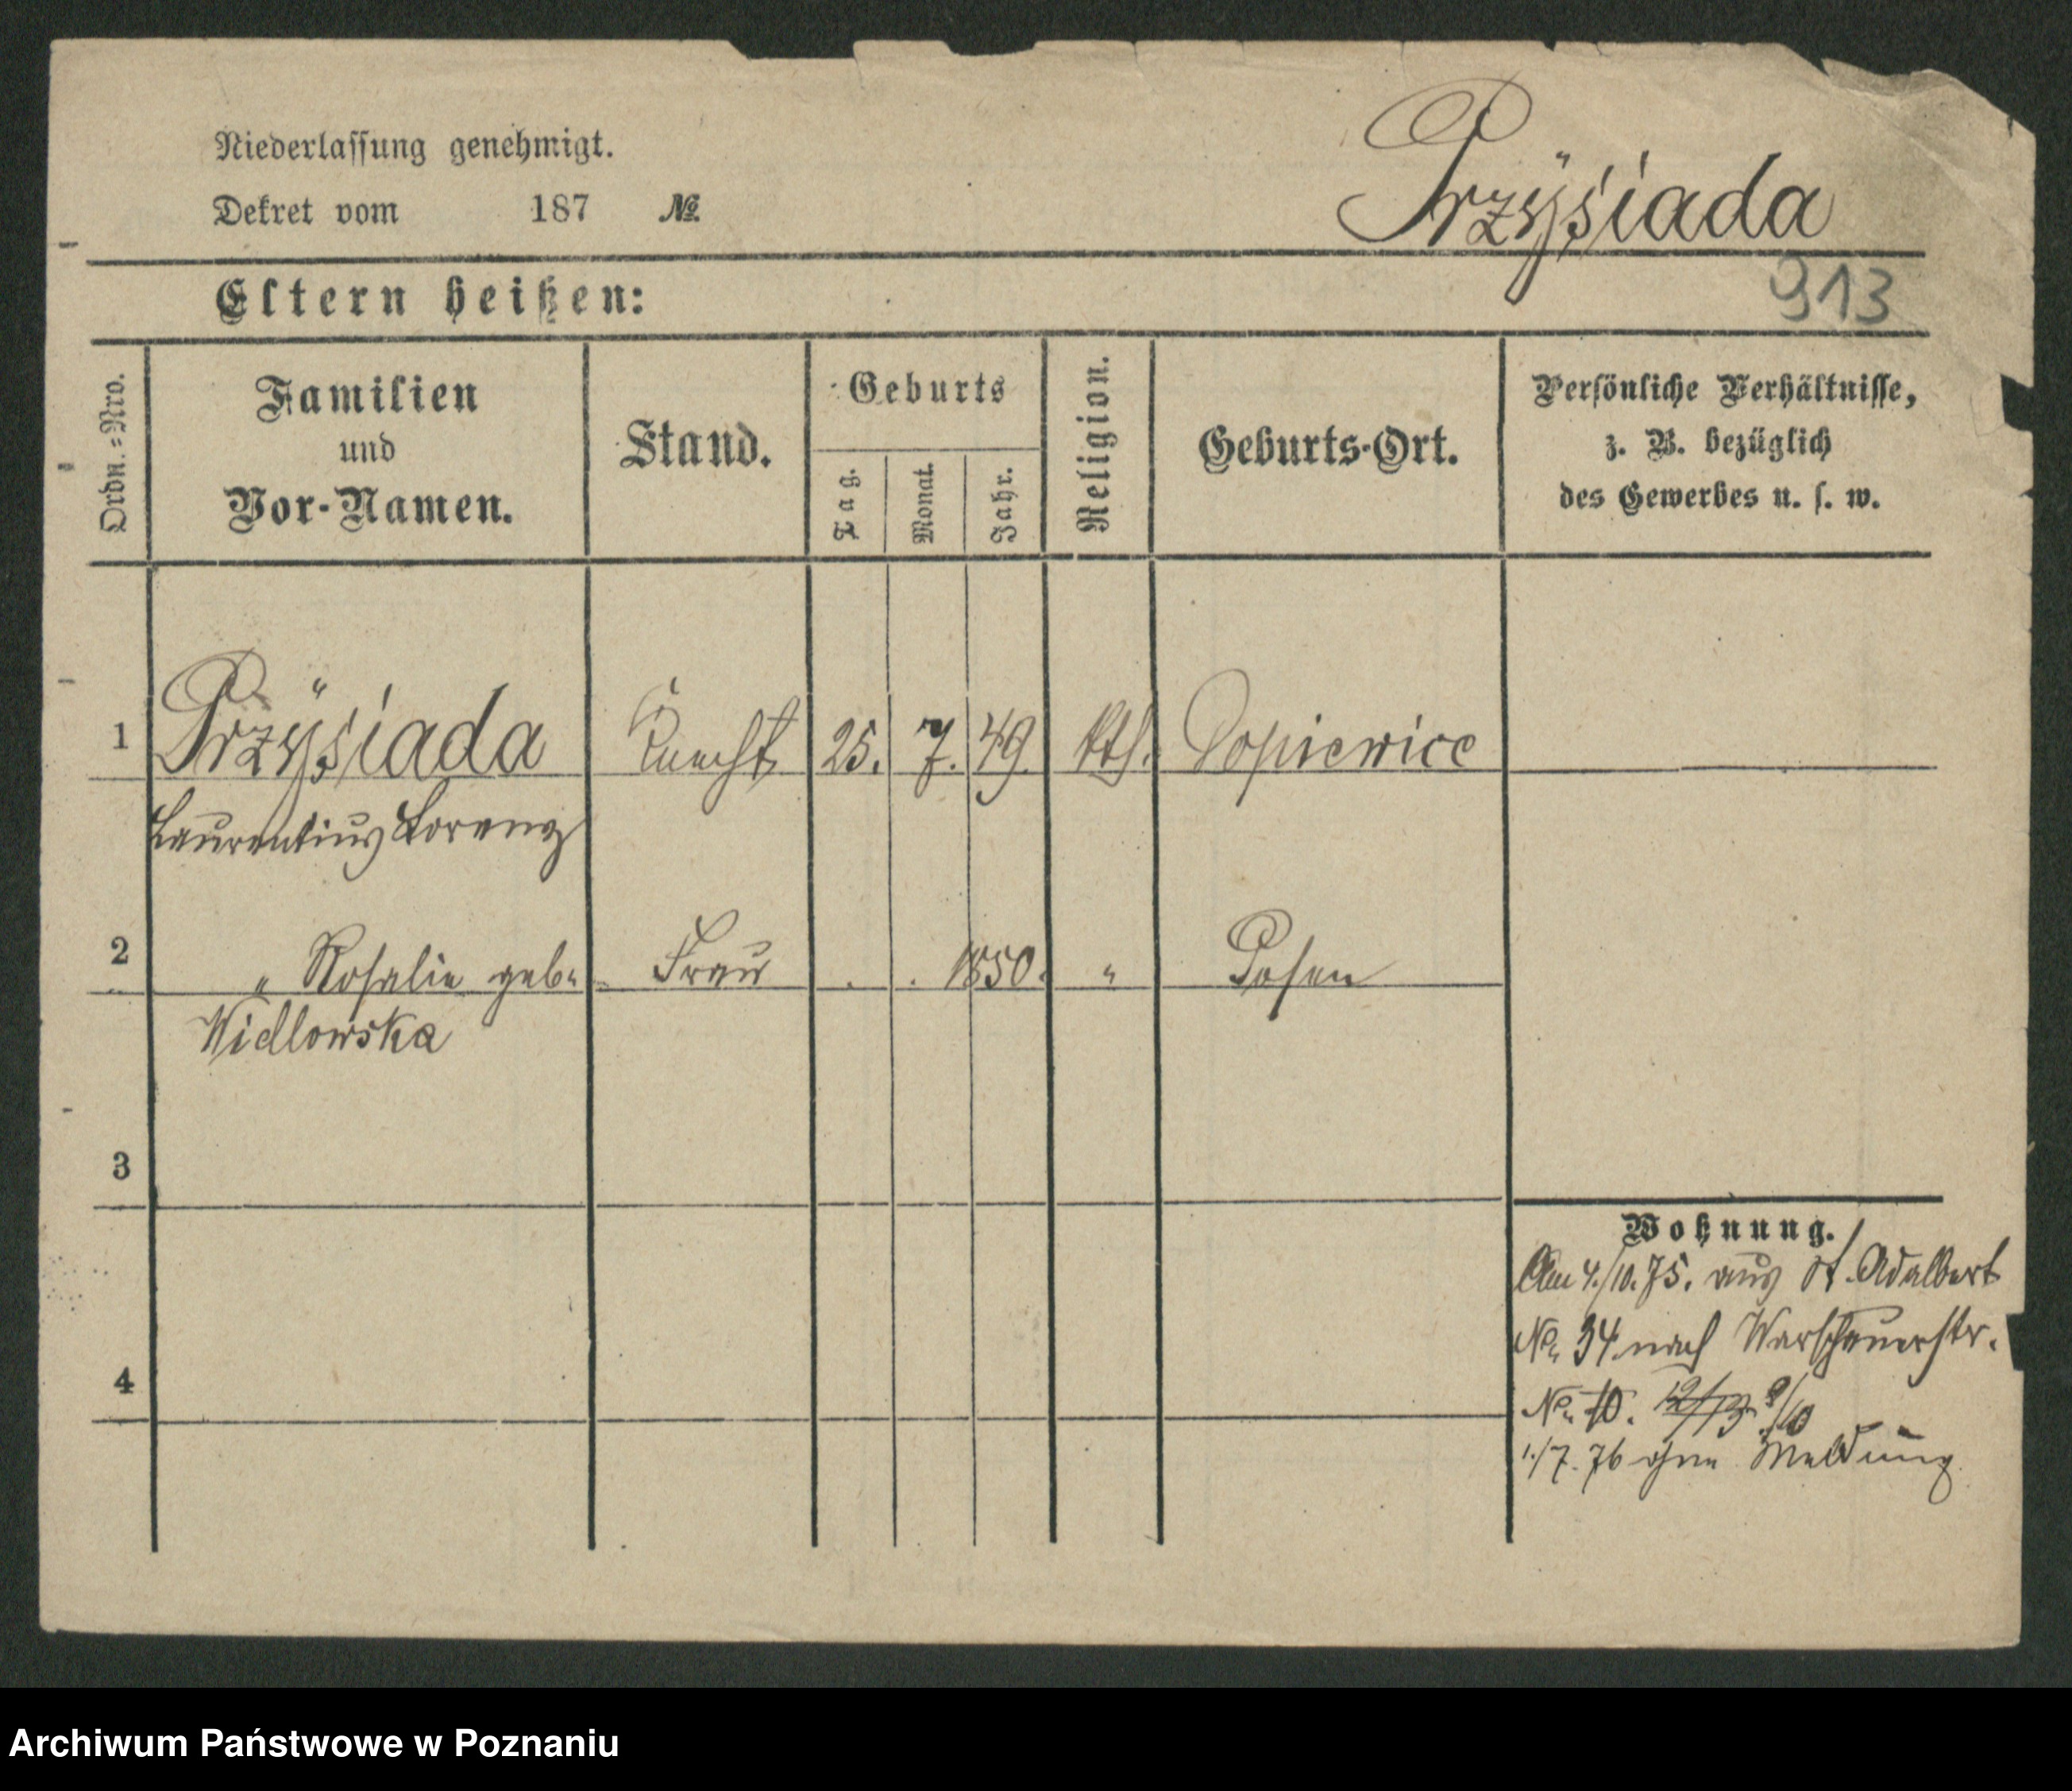 Niederlassung genehmigt.
Dekret vom 187 №
Przÿśiada
913
Eltern heißen:
Ordn.-Nro.
Familien
und
Vor-Namen.
Stand.
Geburts
Tag.
Monat.
Jahr.
Religion.
Geburts-Ort.
Persönliche Verhältnisse,
z. B. bezüglich
des Gewerbes u. s. w.
1 Przÿśiada Knecht 25. 7. 49. kth. Dopiewice
Laurentius Lorenz
2 " Rosalie geb. Frau . . 1850. " Posen
Widlowska
3
4
Wohnung.
Am 4./10.75. aus St. Adalbert
No. 34 nach Warschauerstr.
No. 10. 12/13 9/10
1./7.76 ohne Meldung
Archiwum Państwowe w Poznaniu